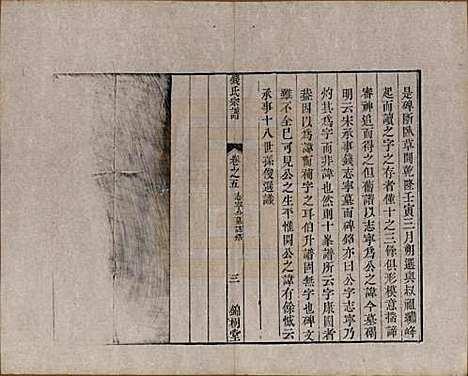 是碑斷臥草間乾隆壬寅三月朔選與叔祖峰
起而讀之字之存者僅十之三餘俱形模意揣諦
審碑追而得之但舊譜以志寧爲公之諱今墓碣
明云宋承事錢志寧墓而碑銘亦曰公字志寧乃
灼其爲字而非諱也然則十峯譜所云字康國者
蓋因以爲諱而補字之耳伯升譜固無字也碑文
雖不全已可見公之生平惟闕公之諱有餘憾云
承事十八世孫俊選識
錢氏宗譜
卷之五
三
錦樹堂